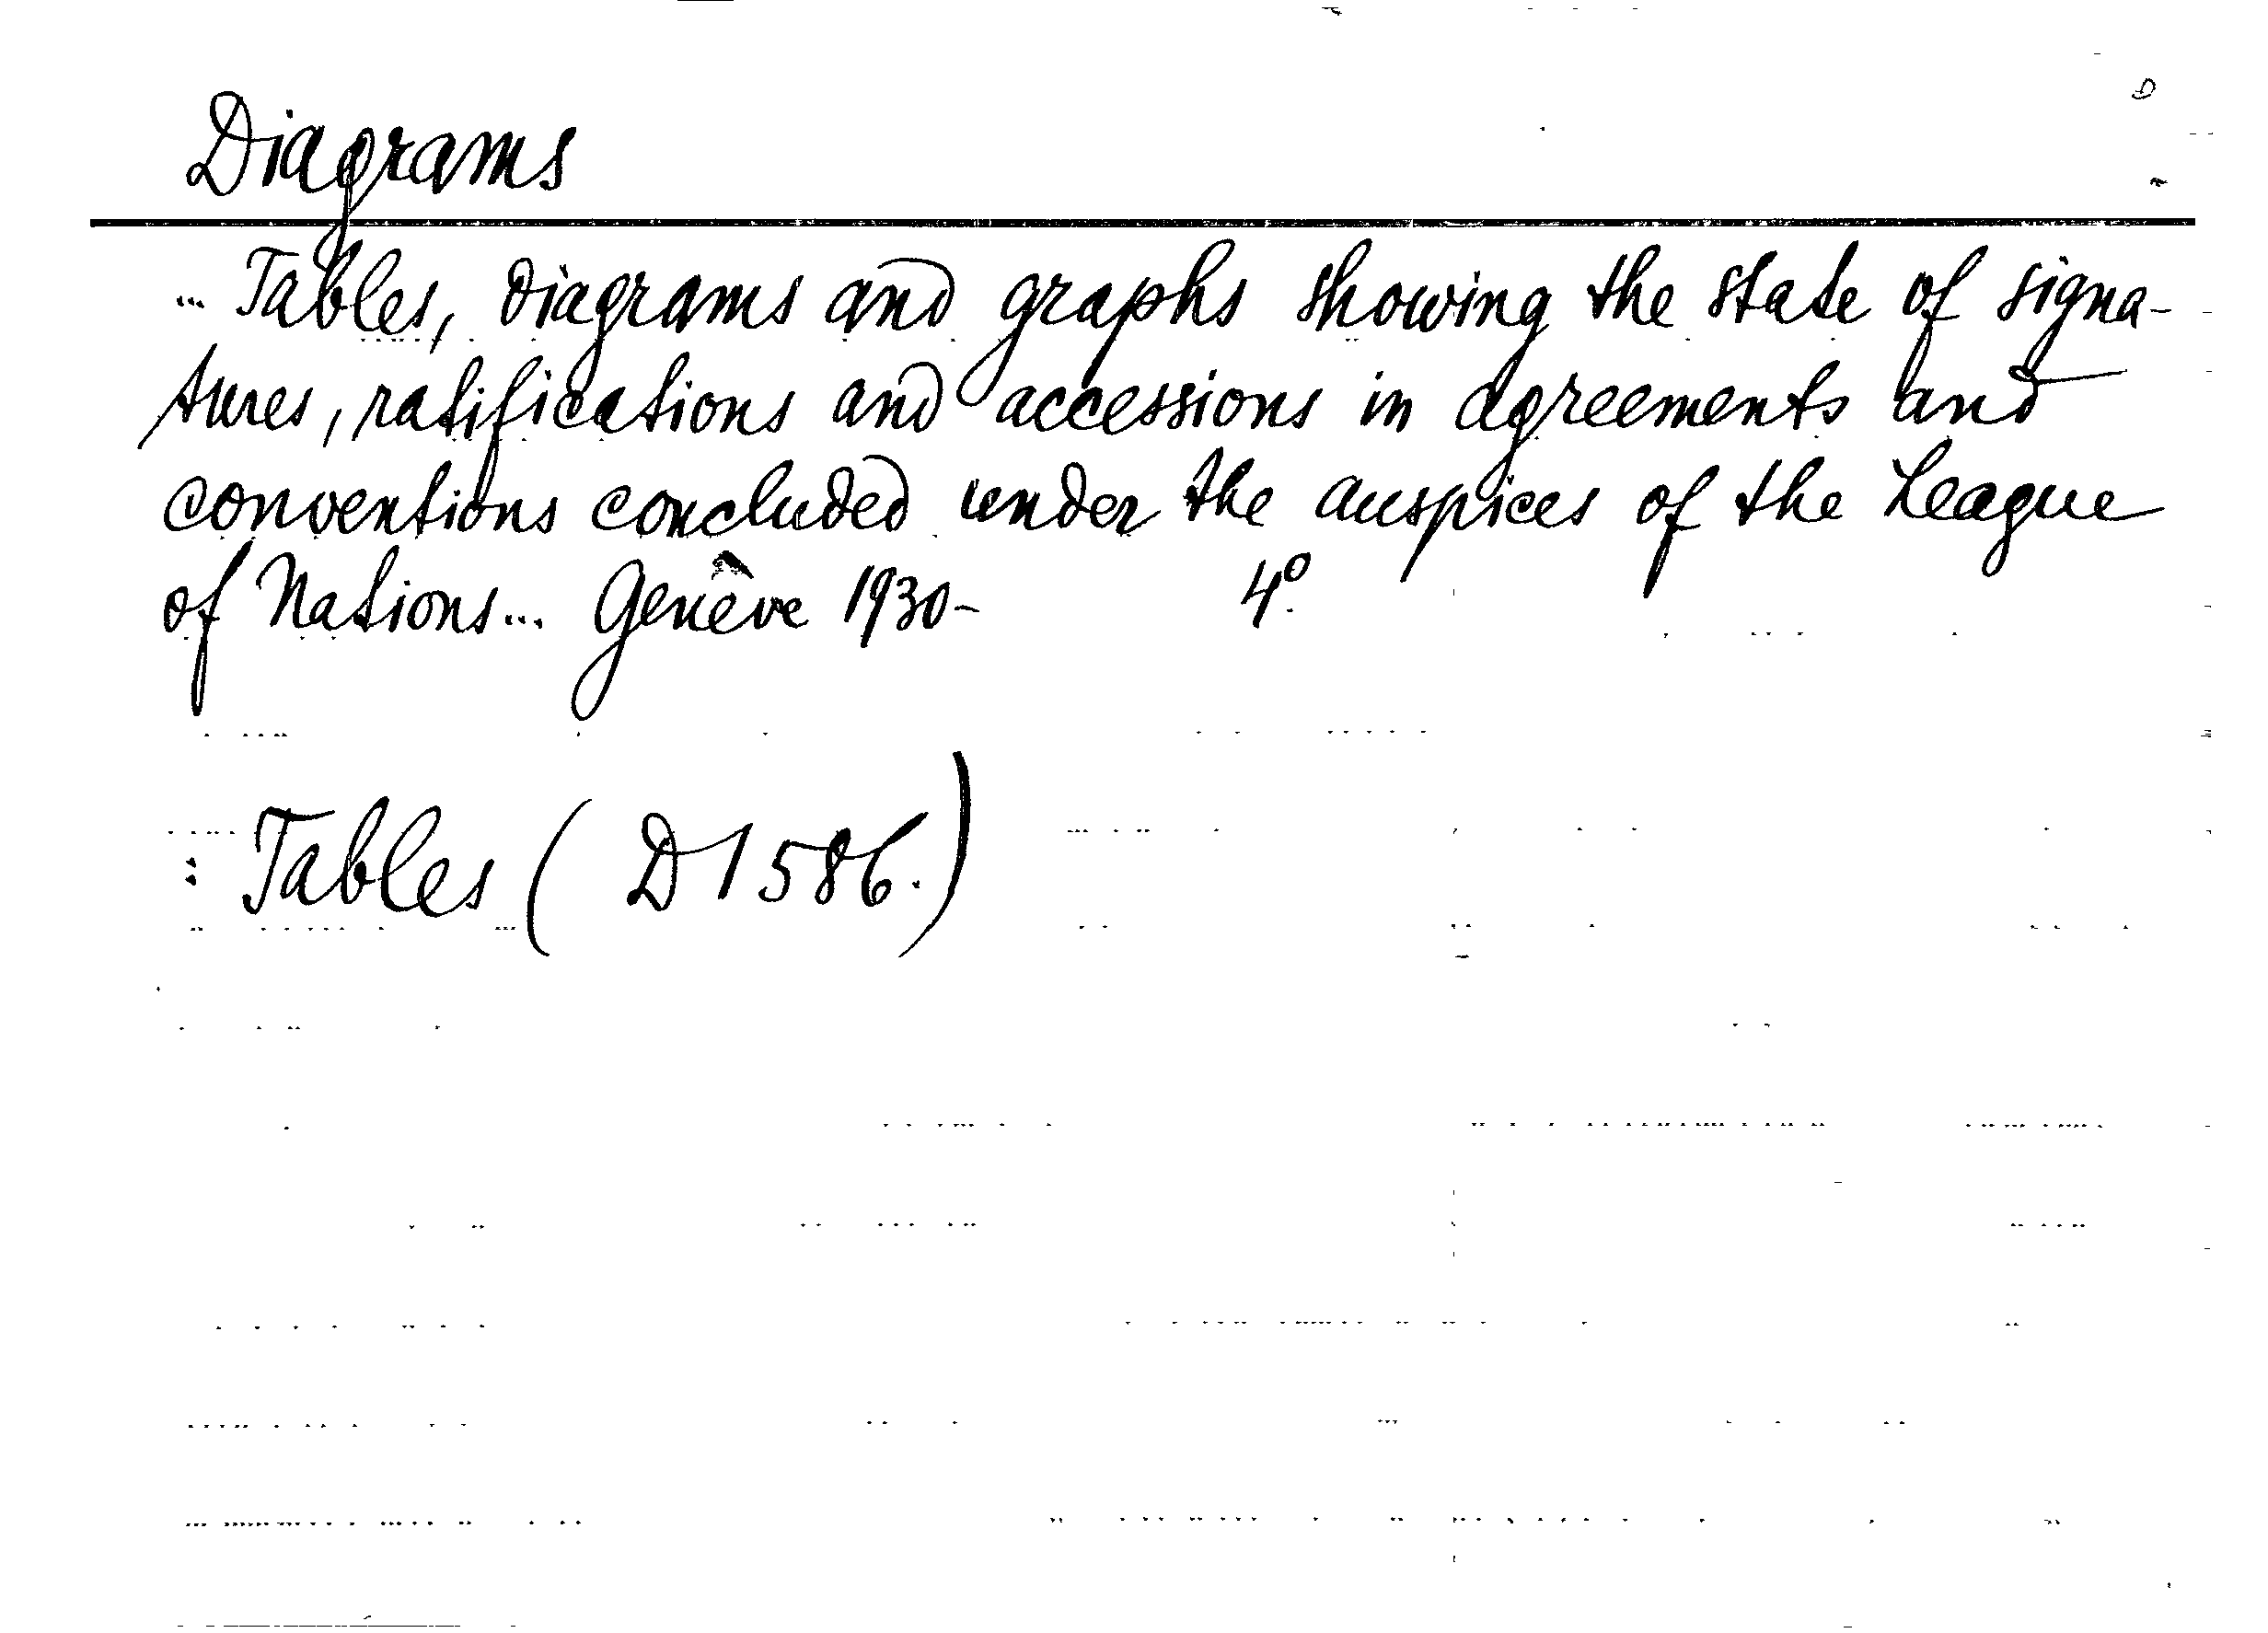 Diagrams
... Tables, diagrams and graphs showing the state of signa-
tures, ratifications and accessions in agreements and
conventions concluded under the auspices of the League
of Nations... Genève 1930- 4º.
: Tables ( D1586.)